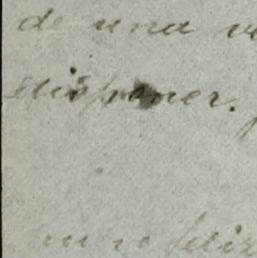 de una
disponer.
feliz